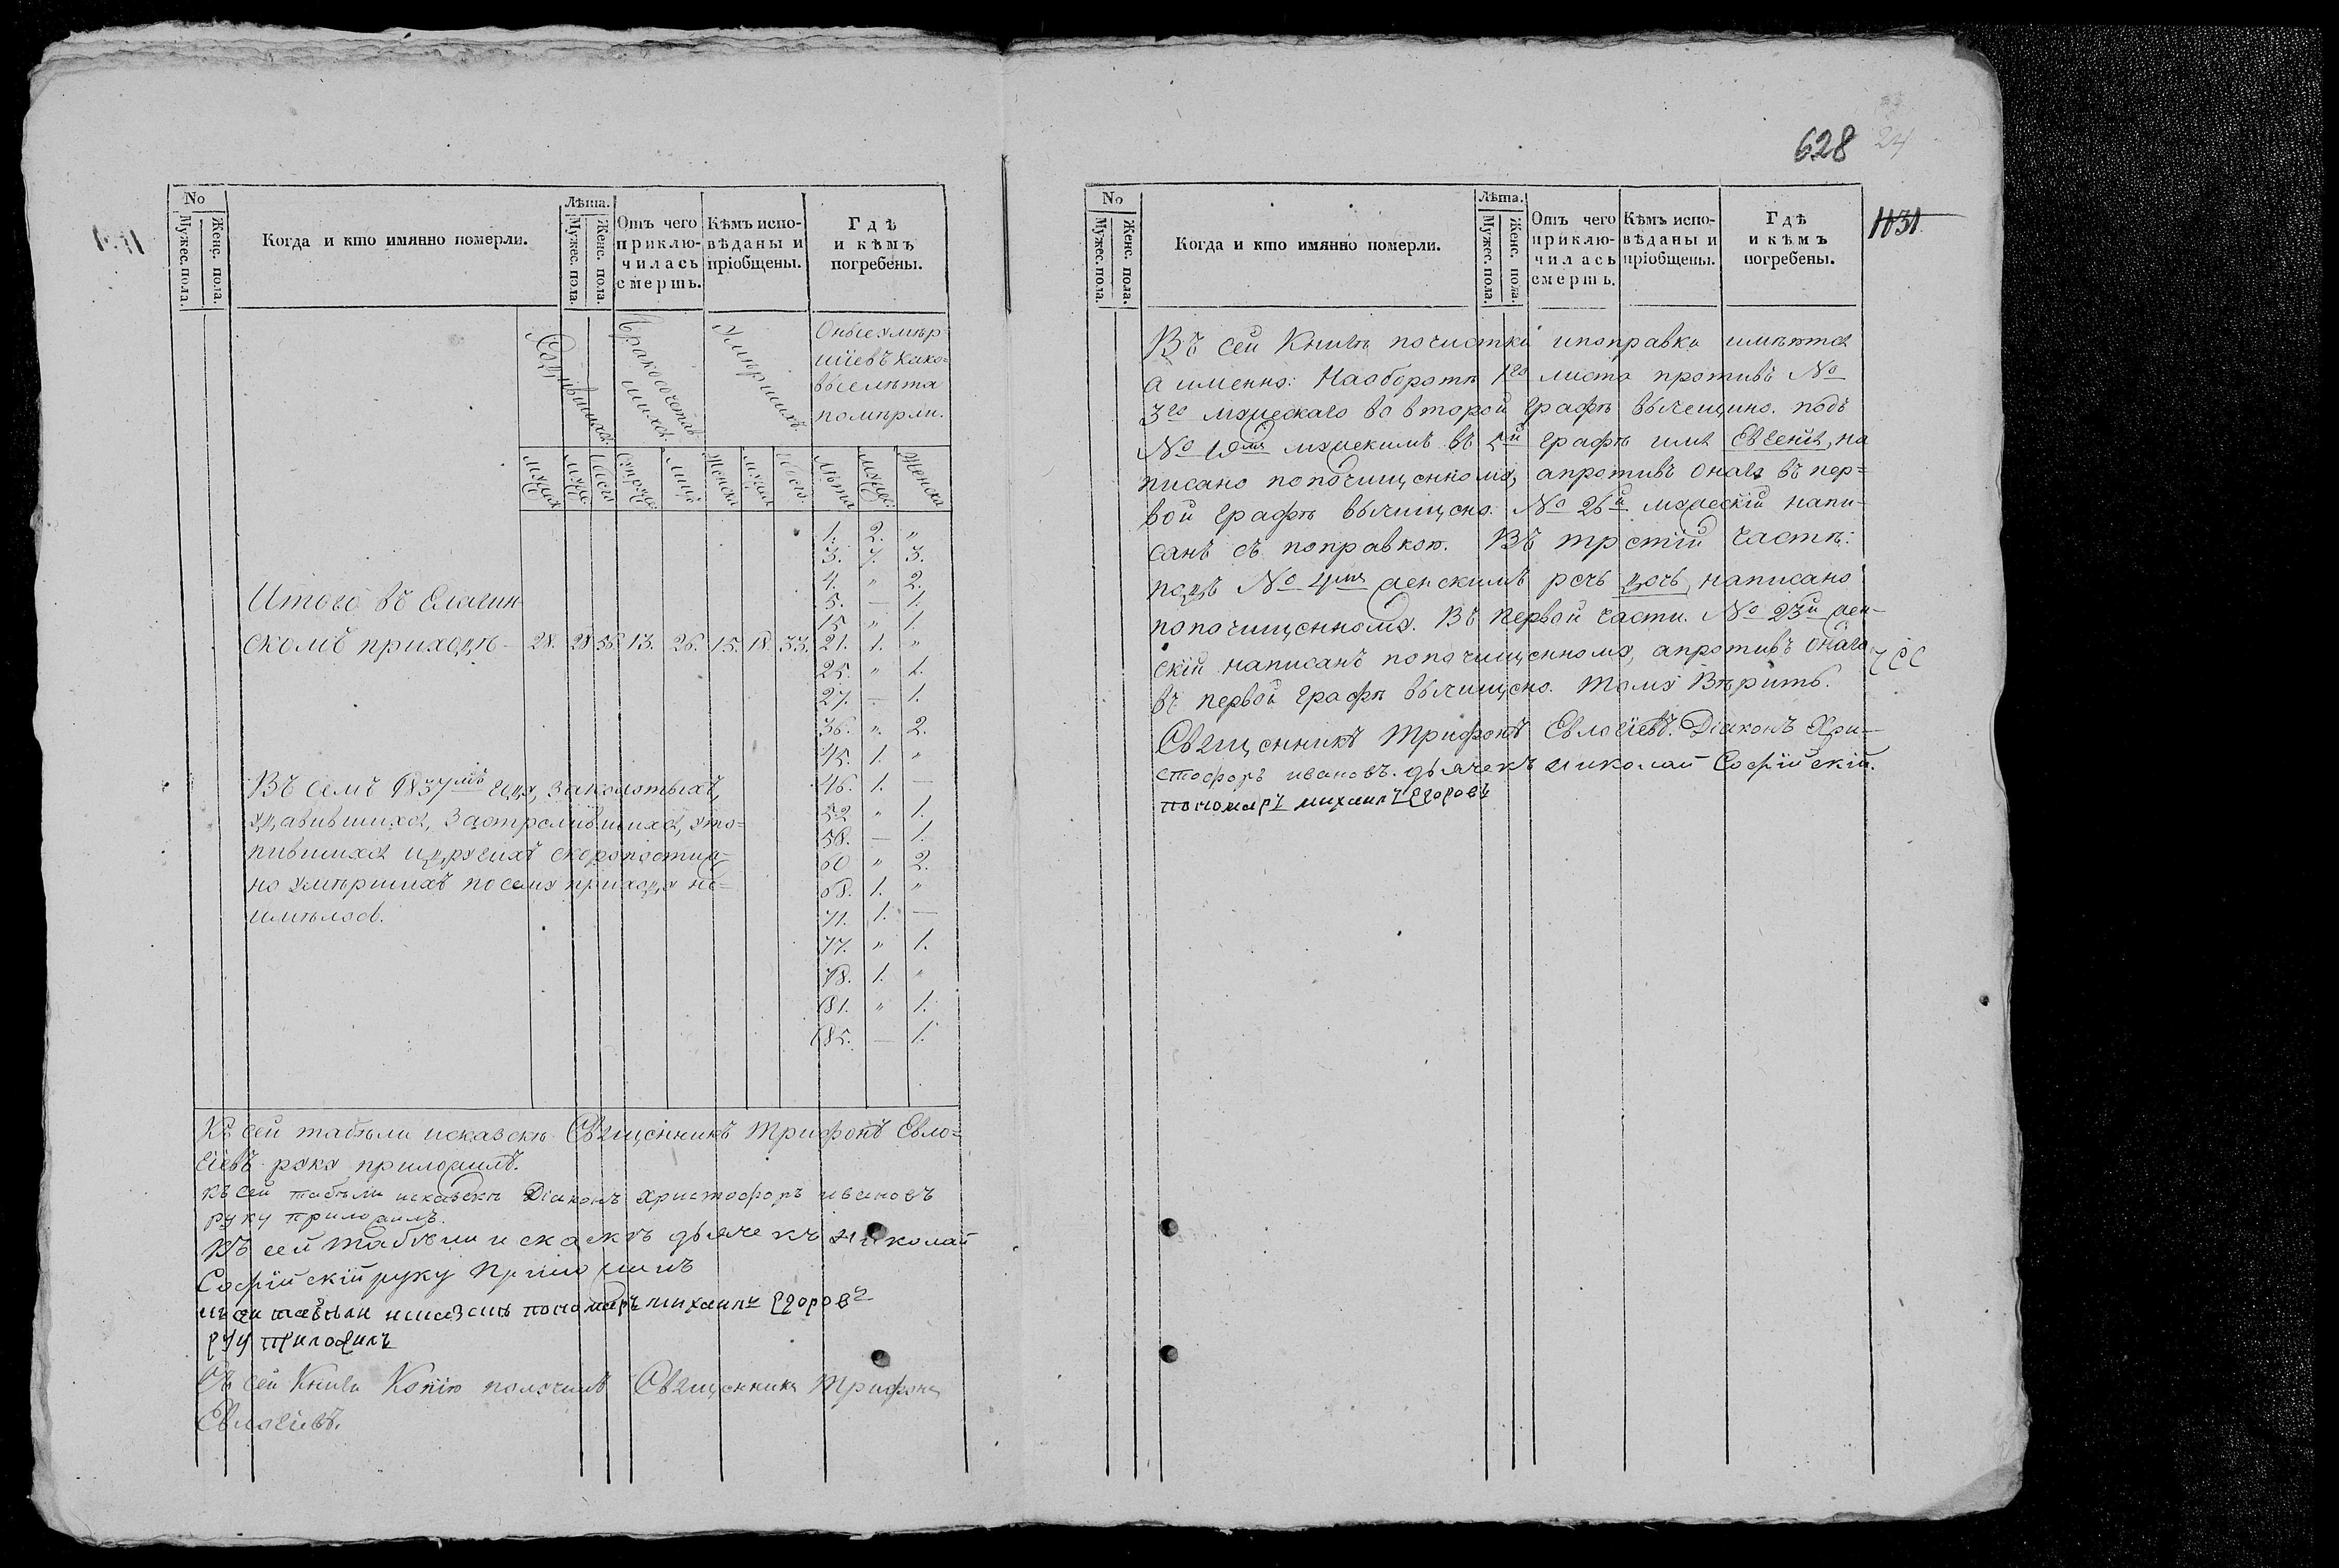 No
Мужес. пола.
Женс. пола.
Когда и кто имянно померли.
Лѣта.
Мужес. пола.
Женс. пола.
Отъ чего приклю-чилась смерть.
Кѣмъ испо-вѣданы и пріобщены.
Гдѣ и кѣмъ погребены.
Родившихся.
Бракосочетав-
шихся.
Умершихъ.
Оныеумѣр-
шіевъ како-
вые лѣта
помѣрли.
Лѣта
Женска
1. 2. "
3. 7. 3.
4. " 2.
Итого въ Елагин-
5. — 1.
15 " 1.
скомъ приходѣ - 28. 28 56. 13. 26. 15. 18. 33. 21. 1. "
25. " 1.
27. — 1.
36. " 2.
45. 1. "
Въ семъ 1837мъ году, заколотыхъ,
46. 1. —
удавившихся, Застрелившихся, уто-
52 " 1.
пившихся идругихъ скоропостиж-
58. — 1.
60 " 2.
но умѣршихъ посему приходу не-
68. 1. "
имѣлось.
71. 1. —
77. " 1.
78. 1. "
81. " 1.
85. — 1.
Къ сей табѣли исказкѣ Священникъ Трифонъ Евло-
гіевъ руку приложилъ.
къ сей табѣли исказкѣ Діаконъ Христофоръ ивановъ
руку приложилъ.
Къ сей табѣли искаскѣ дьячекъ Николай
Софійскій руку приложилъ
къ сей табѣли исказкѣ пономарь михаилъ Егоровъ
руку приложилъ
Съ сей Книги Копію получилъ Священникъ Трифонъ
Евлогіевъ.
628 24
No
Мужес. пола.
Женс. пола.
Когда и кто имянно померли.
Лѣта.
Мужес. пола.
Женс. пола.
Отъ чего приклю-чилась смерть.
Кѣмъ испо-вѣданы и пріобщены.
Гдѣ и кѣмъ погребены.
Въ сей Книгѣ почистки ипоправки имѣются
а именно: Наоборотѣ 1го листа противъ No
3го мужескаго во второй графѣ вычещино. подъ
No 19мъ мужескимъ въ 5й графѣ имя Евгенія, на
писано поподчищенному, апротивъ онаго въ пер-
вой графѣ вычищено. No 26й мужескій напи-
санъ съ поправкою. Въ третій частѣ:
подъ No 4мъ женскимъ речь дочь, написано
попочищенному. Въ первой части. No 23й жен-
скій написанъ попочищенному, апротивъ онаго
въ первой графѣ вычищено. Тому Вѣрить.
Священникъ Трифонъ Евлогіевъ. Діаконъ Хри-
стофоръ ивановъ. дьячекъ Николай Софійскій.
пономарь михаилъ Егоровъ